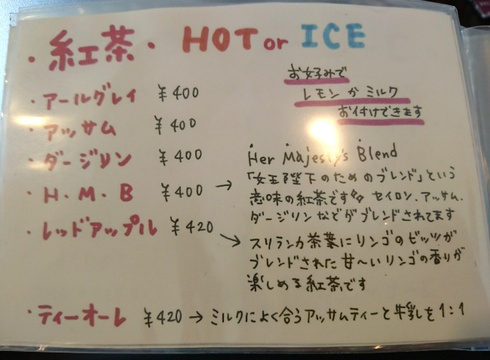 ・紅茶・ HOT or ICE
お好みで
レモンかミルク
お付けできます
・アールグレイ ¥400
・アッサム ¥400
・ダージリン ¥400
・H.M.B ¥400 → Her Majesty's Blend
「女王陛下のためのブレンド」という
意味の紅茶です セイロン、アッサム、
ダージリンなどがブレンドされてます
・レッドアップル ¥420 → スリランカ茶葉にリンゴのピッツが
ブレンドされた甘〜いリンゴの香りが
楽しめる紅茶です
・ティーオーレ ¥420 → ミルクによく合うアッサムティーと牛乳を1:1